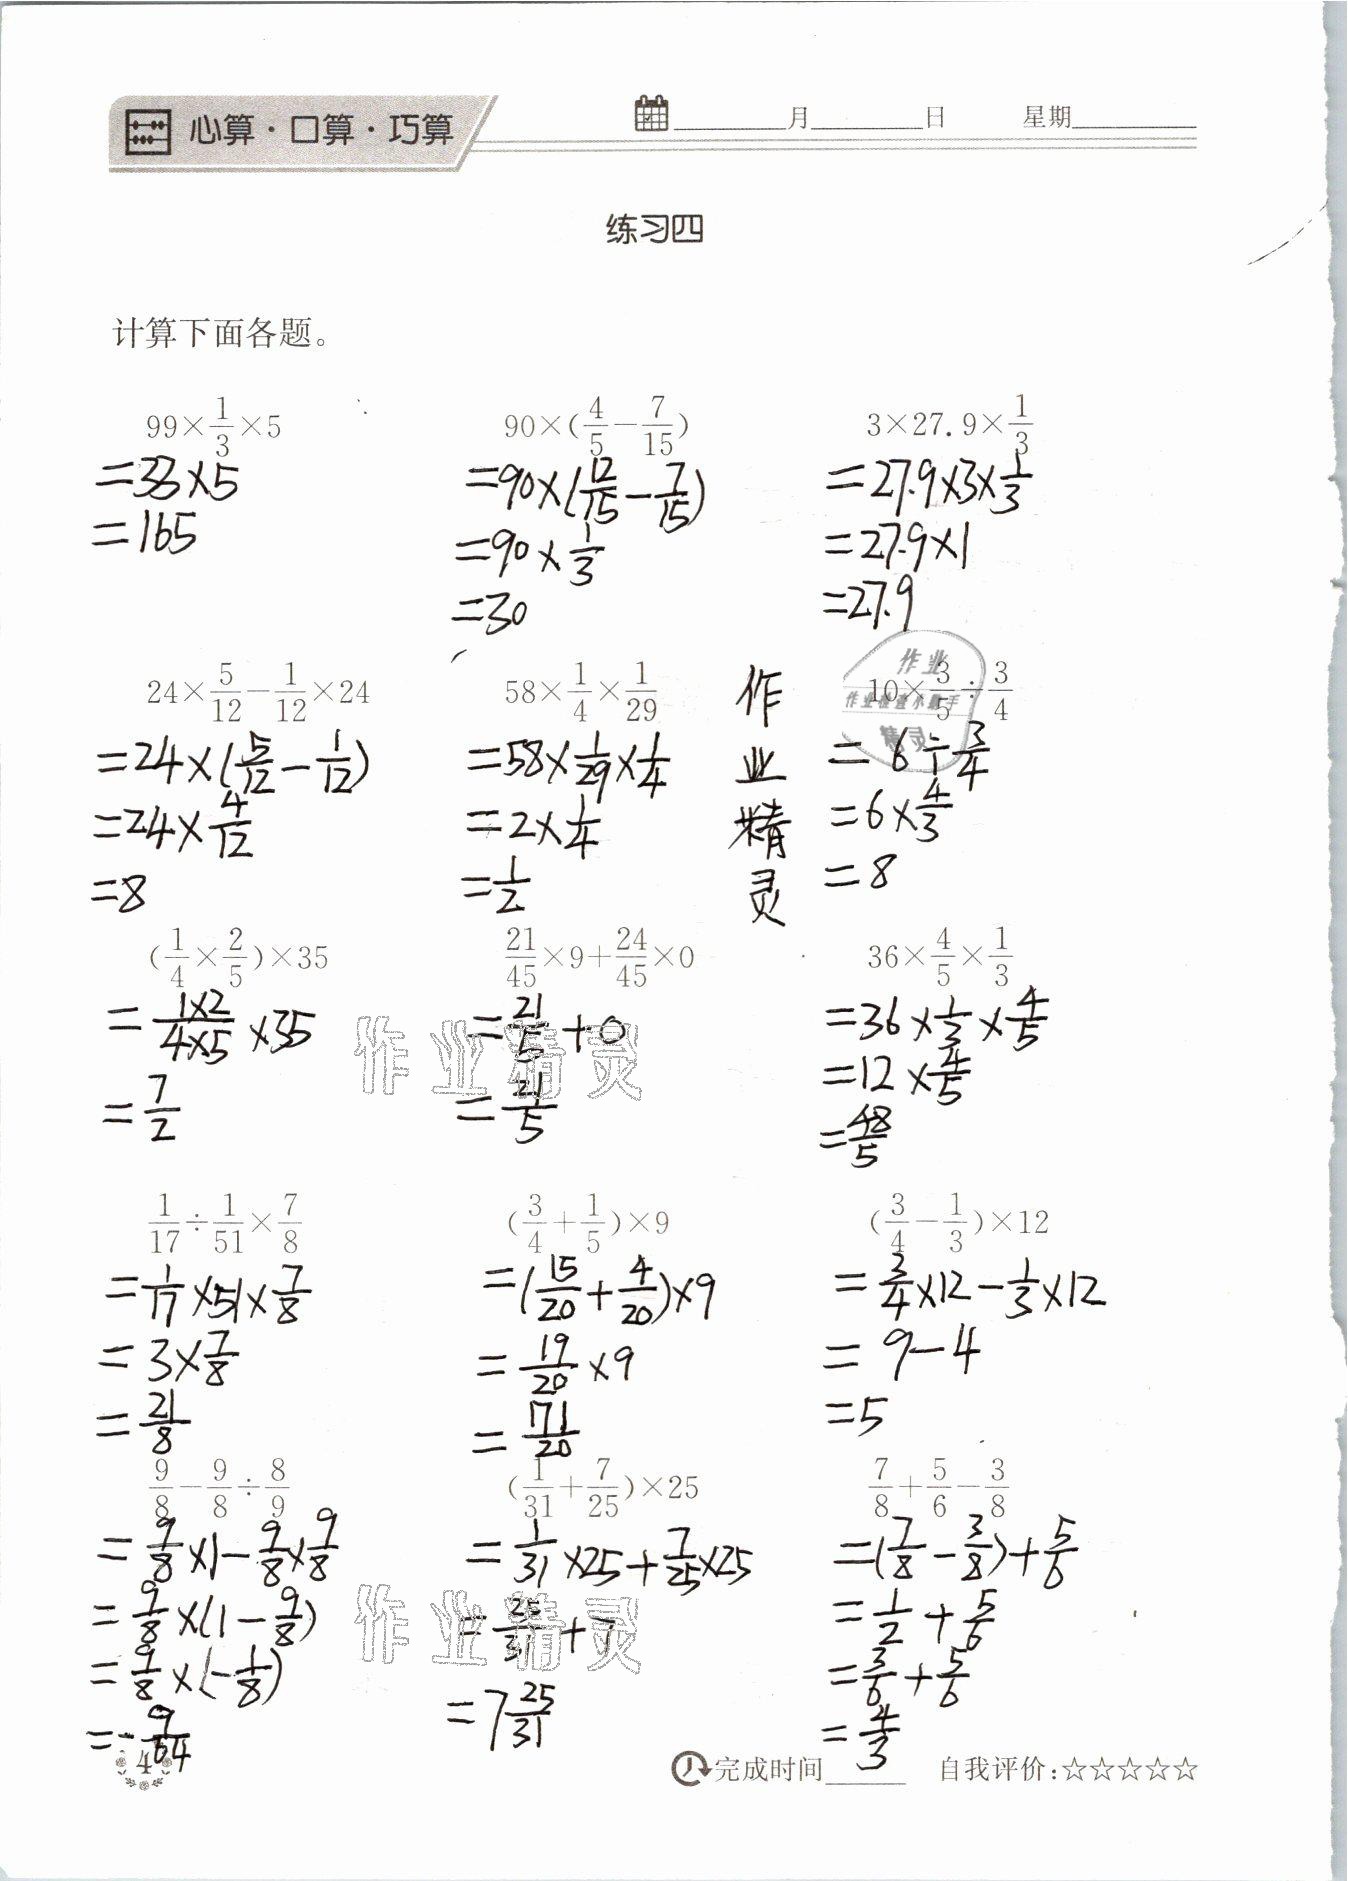 心算·口算·巧算 月 日 星期
练习四
计算下面各题。
99×1/3×5
=33×5
=165
90×(4/5-7/15)
=90×(12/15-7/15)
=90×1/3
=30
3×27.9×1/3
=27.9×3×1/3
=27.9×1
=27.9
24×5/12-1/12×24
=24×(5/12-1/12)
=24×4/12
=8
58×1/4×1/29
=58×1/29×1/4
=2×1/4
=1/2
作业精灵
作业
作业检查小助手
精灵
10×3/5÷3/4
=6÷3/4
=6×4/3
=8
(1/4×2/5)×35
=1×2/4×5×35
=7/2
21/45×9+24/45×0
=21/5+0
=21/5
36×4/5×1/3
=36×1/3×4/5
=12×4/5
=48/5
作业精灵
1/17÷1/51×7/8
=1/17×51×7/8
=3×7/8
=21/8
(3/4+1/5)×9
=(15/20+4/20)×9
=19/20×9
=171/20
(3/4-1/3)×12
=3/4×12-1/3×12
=9-4
=5
9/8-9/8÷8/9
=9/8×1-9/8×9/8
=9/8×(1-9/8)
=9/8×(-1/8)
=-9/64
(1/31+7/25)×25
=1/31×25+7/25×25
=25/31+7
=7 25/31
7/8+5/6-3/8
=(7/8-3/8)+5/6
=1/2+5/6
=3/6+5/6
=4/3
作业精灵
4
完成时间 自我评价:☆☆☆☆☆